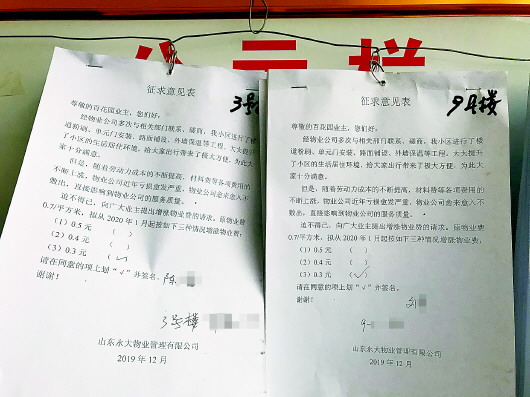 公示栏
征求意见表
3号
尊敬的百花园业主，您们好：
经物业公司多次与相关部门联系、磋商，我小区进行了楼
道粉刷、单元门安装、路面铺设、外墙保温等工程，大大提
了小区的生活居住环境，给大家出行带来了极大方便，为此
家十分满意。
但是，随着劳动力成本的不断提高，材料费等各项费用的
不断上涨，物业公司近年亏损愈发严重，物业公司愈来愈入不
敷出，直接影响到物业公司的服务质量。
迫不得已，向广大业主提出增涨物业费的请求。原物业费
0.7/平方米，拟从2020年1月起按如下三种情况增涨物业费：
（1）0.5元 （ ）
（2）0.4元 （ ）
（3）0.3元 （✓）
请在同意的项上划“√”并签名。 陈
谢谢！
3号楼
山东永大物业管理有限公司
2019年12月
征求意见表
9号楼
尊敬的百花园业主，您们好：
经物业公司多次与相关部门联系、磋商，我小区进行了楼
道粉刷、单元门安装、路面铺设、外墙保温等工程，大大提升
了小区的生活居住环境，给大家出行带来了极大方便，为此大
家十分满意。
但是，随着劳动力成本的不断提高，材料费等各项费用的
不断上涨，物业公司近年亏损愈发严重，物业公司愈来愈入不
敷出，直接影响到物业公司的服务质量。
迫不得已，向广大业主提出增涨物业费的请求。原物业费
0.7/平方米，拟从2020年1月起按如下三种情况增涨物业费：
（1）0.5元 （ ）
（2）0.4元 （ ）
（3）0.3元 （✓）
请在同意的项上划“√”并签名。
谢谢！ 刘
9-
山东永大物业管理有限公司
2019年12月